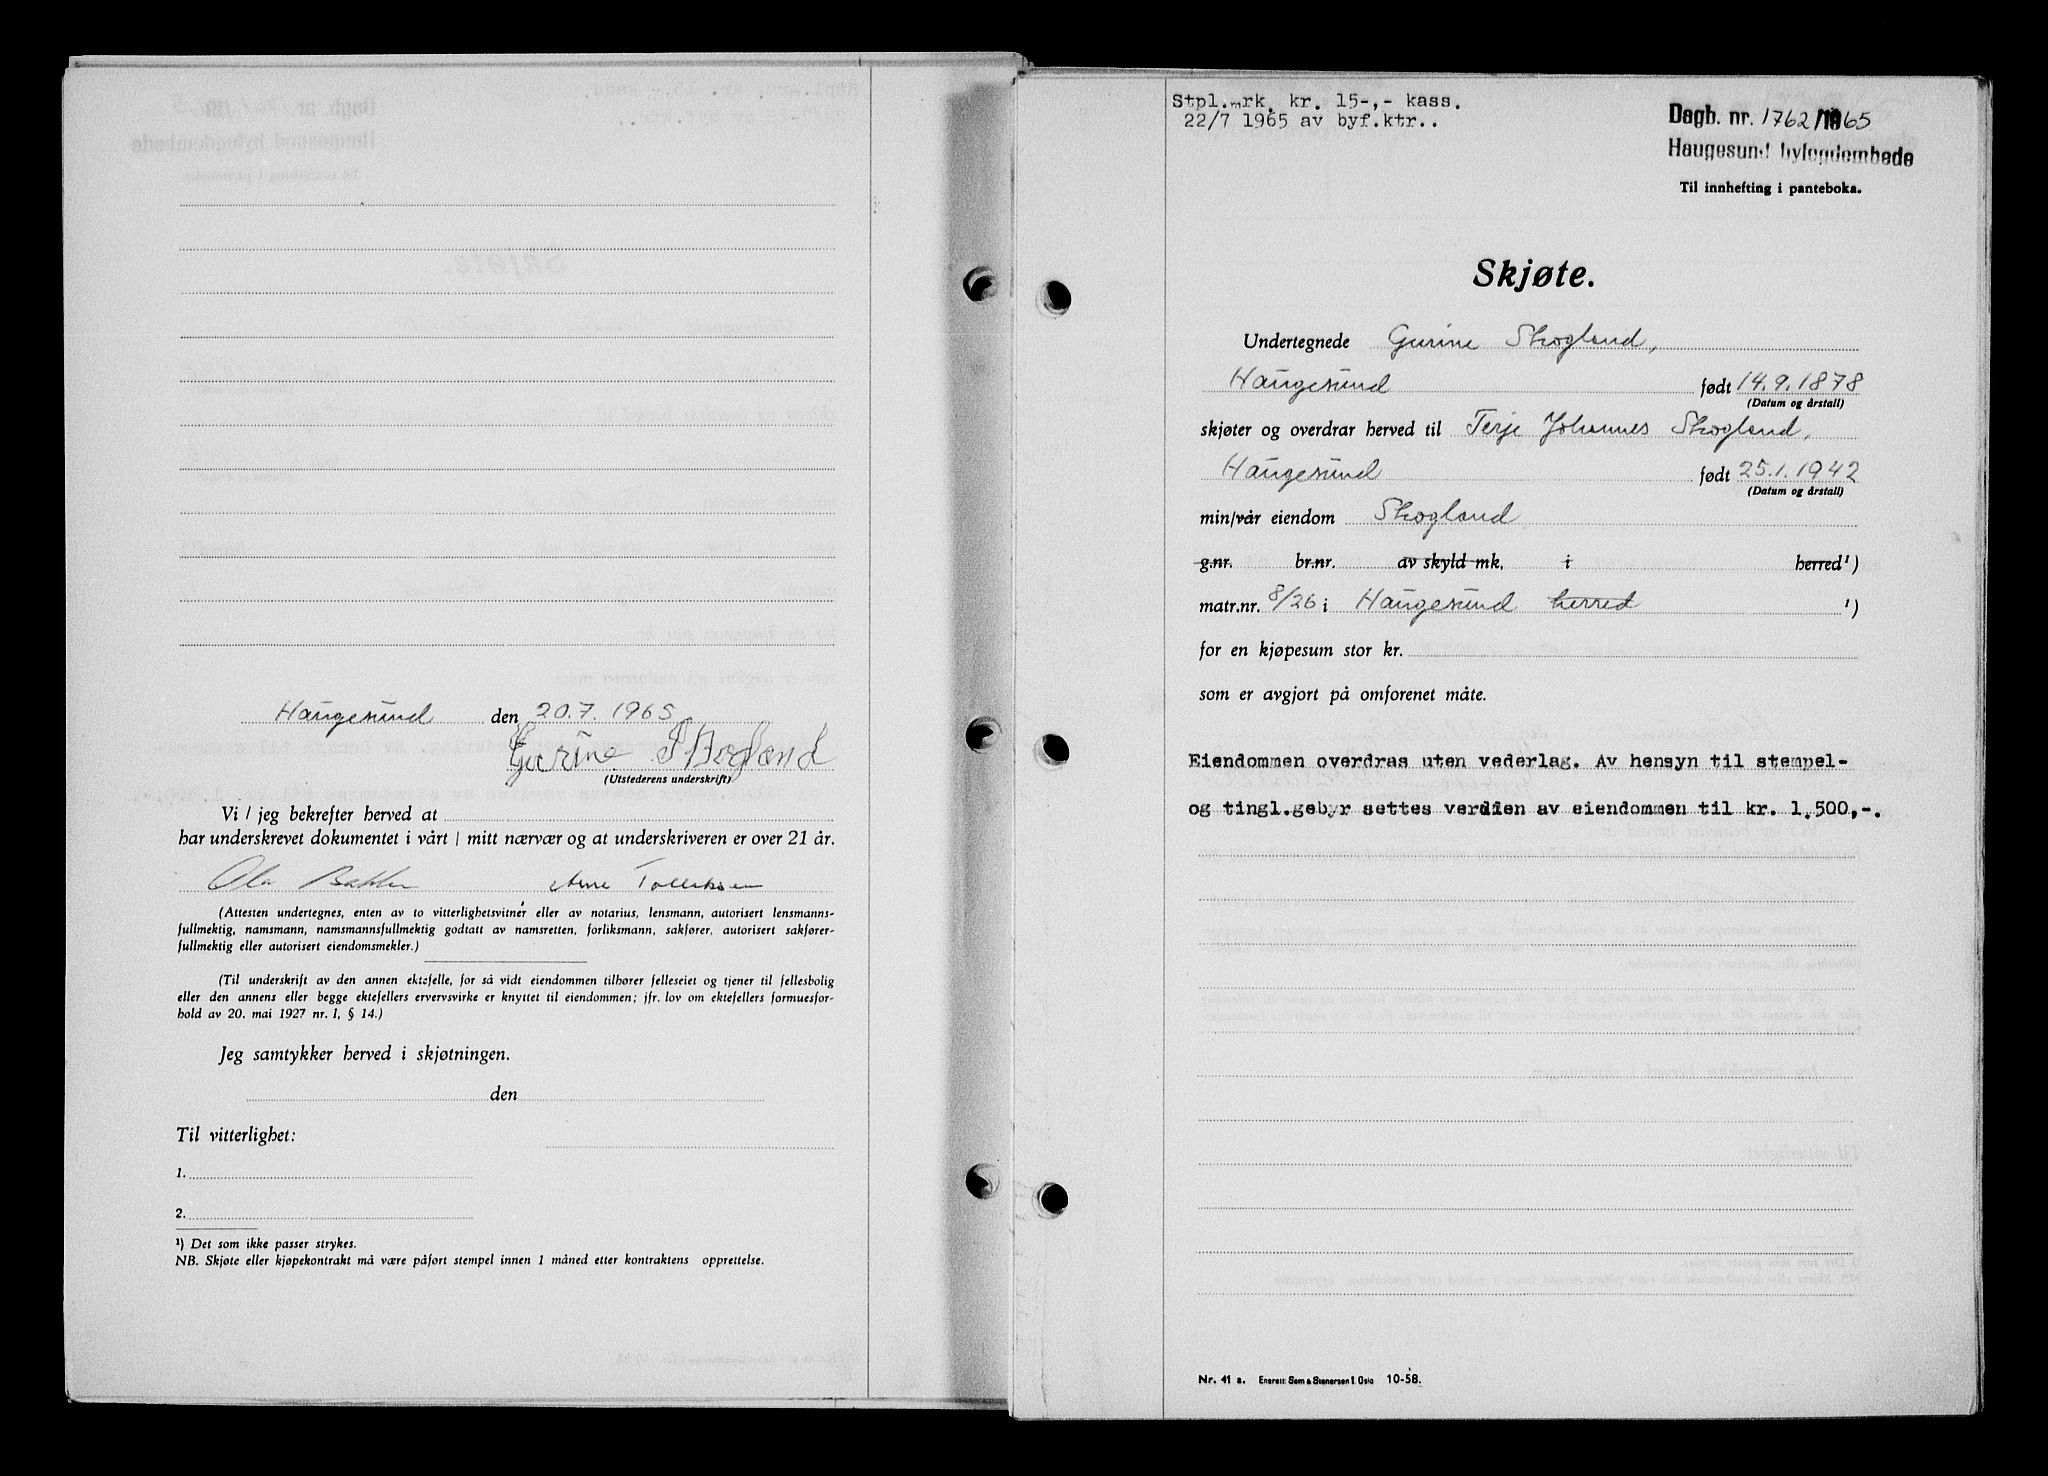 Haugesund den 20.7.1965
Gurine Skogland
(Utstederens underskrift)
Vi / jeg bekrefter herved at
har underskrevet dokumentet i vårt / mitt nærvær og at underskriveren er over 21 år.
Ola Arne
(Attesten undertegnes, enten av to vitterlighetsvitner eller av notarius, lensmann, autorisert lensmanns-
fullmektig, namsmann, namsmannsfullmektig godtatt av namsretten, forliksmann, sakfører, autorisert sakfører-
fullmektig eller autorisert eiendomsmekler.)
(Til underskrift av den annen ektefelle, for så vidt eiendommen tilhører felleseiet og tjener til fellesbolig
eller den annens eller begge ektefellers ervervsvirke er knyttet til eiendommen; jfr. lov om ektefellers formuesfor-
hold av 20. mai 1927 nr. 1, § 14.)
Jeg samtykker herved i skjøtningen.
den
Til vitterlighet:
1.
2.
¹) Det som ikke passer strykes.
NB. Skjøte eller kjøpekontrakt må være påført stempel innen 1 måned etter kontraktens opprettelse.
Stpl.mrk. kr. 15-,- kass.
22/7 1965 av byf.ktr..
Dagb. nr. 1762/1965
Haugesund byfogdembede
Til innhefting i panteboka.
Skjøte.
Undertegnede Gurine Skogland,
Haugesund født 14.9.1878
(Datum og årstall)
skjøter og overdrar herved til Terje Johannes Skogland,
Haugesund født 25.1.1942
(Datum og årstall)
min/vår eiendom Skogland
g.nr. br.nr. av skyld mk. i herred¹)
matr.nr. 8/26 i Haugesund herred ¹)
for en kjøpesum stor kr.
som er avgjort på omforenet måte.
Eiendommen overdras uten vederlag. Av hensyn til stempel-
og tingl.gebyr settes verdien av eiendommen til kr. 1.500,-.
Nr. 41 a. Enerett: Sem & Stenersen 1. Oslo 10-58.